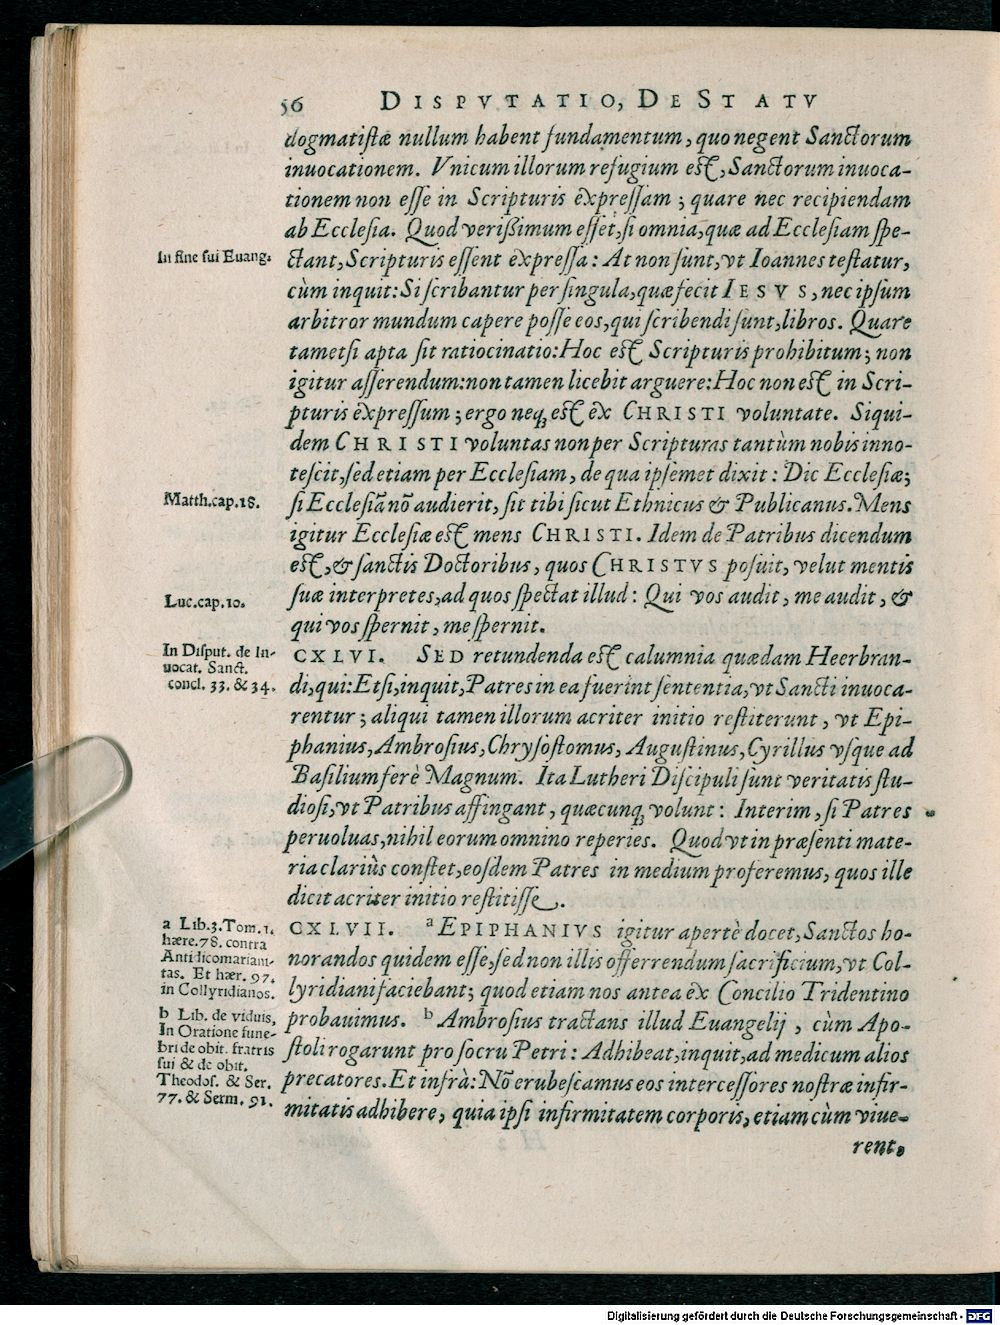 56 DISPVTATIO, DE STATV
dogmatistæ nullum habent fundamentum, quo negent Sanctorum
inuocationem. Vnicum illorum refugium est, Sanctorum inuoca-
tionem non esse in Scripturis expressam; quare nec recipiendam
ab Ecclesia. Quod verißimum esset, si omnia, quæ ad Ecclesiam spe-
In fine sui Euang.
ctant, Scripturis essent expressa: At non sunt, vt Ioannes testatur,
cùm inquit: Si scribantur per singula, quæ fecit IESVS, nec ipsum
arbitror mundum capere posse eos, qui scribendi sunt, libros. Quare
tametsi apta sit ratiocinatio: Hoc est Scripturis prohibitum; non
igitur asserendum: non tamen licebit arguere: Hoc non est in Scri-
pturis expressum; ergo neq; est ex CHRISTI voluntate. Siqui-
dem CHRISTI voluntas non per Scripturas tantùm nobis inno-
tescit, sed etiam per Ecclesiam, de qua ipsemet dixit: Dic Ecclesiæ;
Matth.cap.18.
si Ecclesiã nõ audierit, sit tibi sicut Ethnicus & Publicanus. Mens
igitur Ecclesiæ est mens CHRISTI. Idem de Patribus dicendum
est, & sanctis Doctoribus, quos CHRISTVS posuit, velut mentis
Luc.cap.10.
suæ interpretes, ad quos spectat illud: Qui vos audit, me audit, &
qui vos spernit, me spernit.
In Disput. de In-
uocat. Sanct.
concl. 33. & 34.
CXLVI. SED retundenda est calumnia quædam Heerbran-
di, qui: Etsi, inquit, Patres in ea fuerint sententia, vt Sancti inuoca-
rentur; aliqui tamen illorum acriter initio restiterunt, vt Epi-
phanius, Ambrosius, Chrysostomus, Augustinus, Cyrillus vsque ad
Basilium ferè Magnum. Ita Lutheri Discipuli sunt veritatis stu-
diosi, vt Patribus affingant, quæcunq; volunt: Interim, si Patres
peruoluas, nihil eorum omnino reperies. Quod vt in præsenti mate-
ria clariùs constet, eosdem Patres in medium proferemus, quos ille
dicit acriter initio restitisse.
a Lib.3.Tom.1.
hære.78. contra
Antidicomariani-
tas. Et hær. 97.
in Collyridianos.
CXLVII. a EPIPHANIVS igitur apertè docet, Sanctos ho-
norandos quidem esse, sed non illis offerrendum sacrificium, vt Col-
lyridiani faciebant; quod etiam nos antea ex Concilio Tridentino
b Lib. de viduis,
In Oratione fune-
bri de obit. fratris
sui & de obit.
Theodos. & Ser.
77. & Serm. 91.
probauimus. b Ambrosius tractans illud Euangelij, cùm Apo-
stoli rogarunt pro socru Petri: Adhibeat, inquit, ad medicum alios
precatores. Et infrà: Nõ erubescamus eos intercessores nostræ infir-
mitatis adhibere, quia ipsi infirmitatem corporis, etiam cùm viue-
rent,
Digitalisierung gefördert durch die Deutsche Forschungsgemeinschaft - DFG